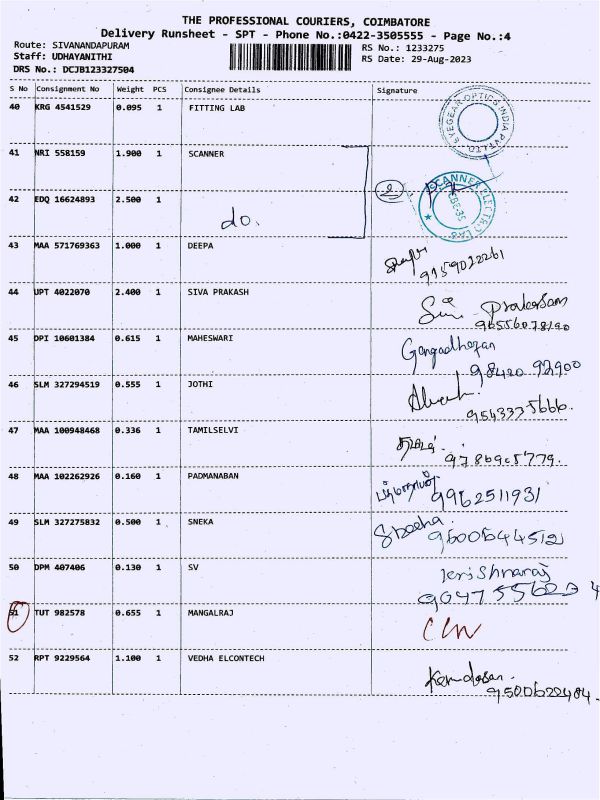 THE PROFESSIONAL COURIERS, COIMBATORE
Delivery Runsheet - SPT - Phone No.:0422-3505555 - Page No.:4
Route: SIVANANDAPURAM
RS No.: 1233275
Staff: UDHAYANITHI
RS Date: 29-Aug-2023
DRS No.: DCJB123327504
S No Consignment No Weight PCS Consignee Details Signature
40 KRG 4541529 0.095 1 FITTING LAB
EYEGEAR OPTICS INDIA PVT LTD
41 NRI 558159 1.900 1 SCANNER
2
42 EDQ 16624893 2.500 1
do.
43 MAA 571769363 1.000 1 DEEPA
9159022261
44 UPT 4022070 2.400 1 SIVA PRAKASH
45 DPI 10601384 0.615 1 MAHESWARI
Gangadharan
98420 92900
46 SLM 327294519 0.555 1 JOTHI
9543335666.
47 MAA 100948468 0.336 1 TAMILSELVI
48 MAA 102262926 0.160 1 PADMANABAN
9962511931
49 SLM 327275832 0.500 1 SNEKA
50 DPM 407406 0.130 1 SV
51 TUT 982578 0.655 1 MANGALRAJ
52 RPT 9229564 1.100 1 VEDHA ELCONTECH